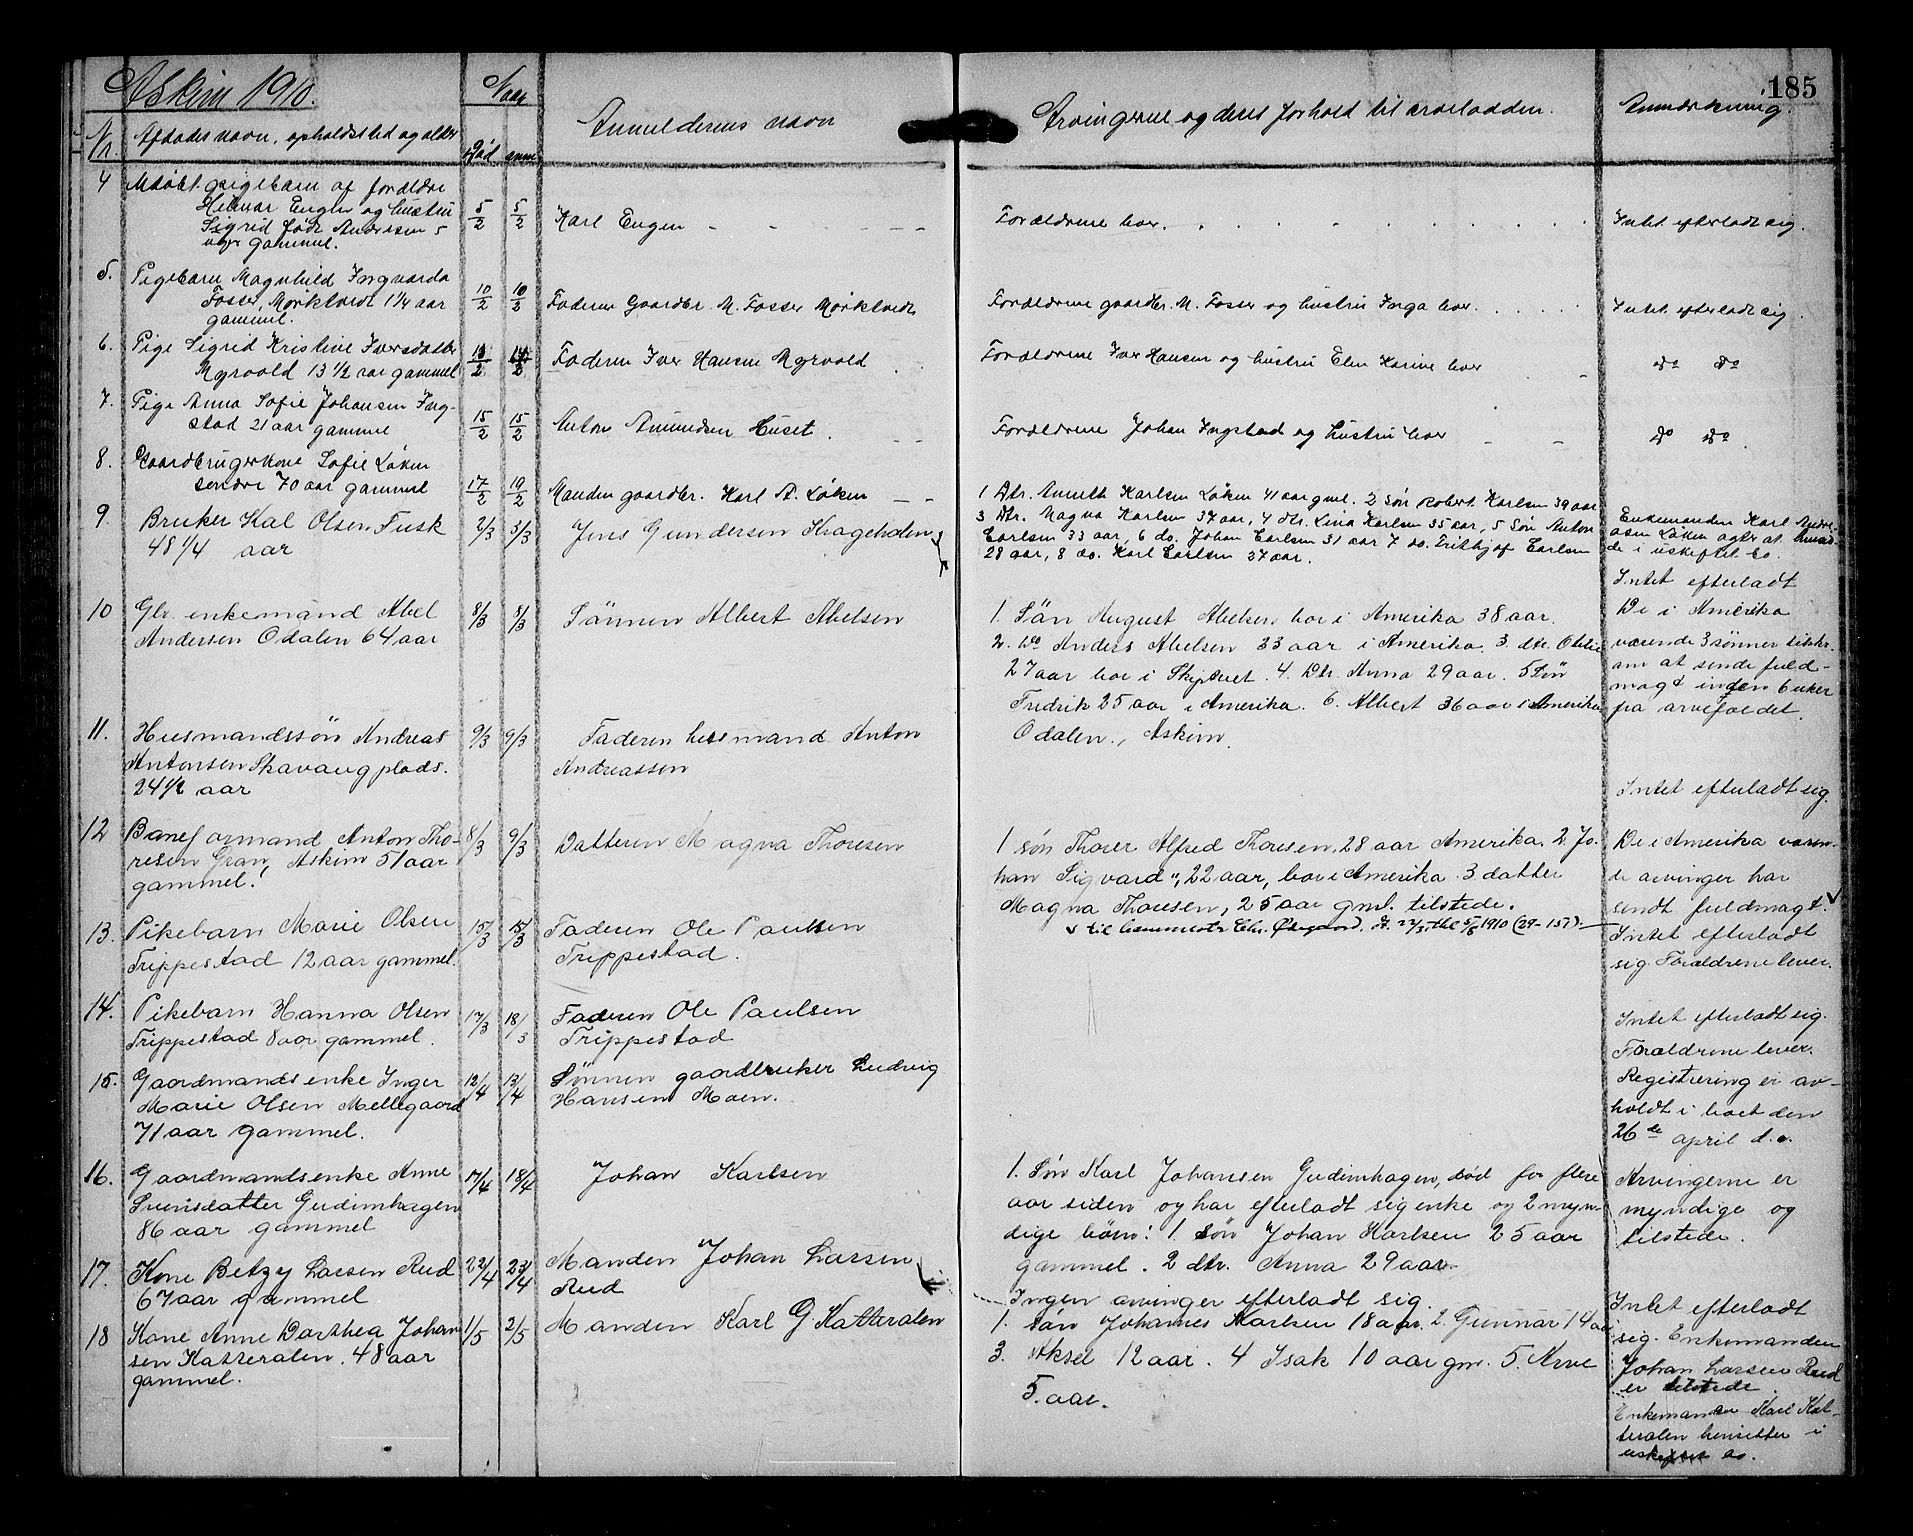 Askim 1910.
Naar
185
Nr.
Afdødes navn, opholdssted og alder
Død
anm
Anmelderens navn
Arvingerne og deres forhold til arveladden.
Anmerkning.
4 Udøbt pigebarn af forældre
Hilmar Engen og hustru
Sigrid født Andersen 5
uger gammel.
5/2 5/2
Karl Engen
Forældrene lever.
Intet efterladt sig.
5. Pigebarn Magnhild Ingvarda
Fosser, Mørktvedt 1 1/4 aar
gammel.
10/2 10/2
Faderen Gaardbr. M. Fosser Mørktvedt
Forældrene gaardbr. M. Fosser og hustru Inga lever.
Intet efterladt sig.
6. Pige Sigrid Kristine Iversdatter
Myrvold 13 1/2 aar gammel
13/2 14/2
Faderen Iver Hansen Myrvold
Forældrene Iver Hansen og hustru Elen Karine lever
do do
7. Pige Anna Sofie Johansen Ing-
stad 21 aar gammel
15/2 15/2
Anton Amundsen Huset.
Forældrene Johan Ingstad og hustru lever
do do
8. Gaardbrugerkone Sofie Løken
søndre 70 aar gammel
17/2 19/2
Manden gaardbr. Karl A. Løken
1 Dtr. Annette Karlsen Løken 41 aar gml. 2 Søn Robert Karlsen 39 aar
3 Dtr. Magna Karlsen 37 aar, 4 dtr. Lina Karlsen 35 aar, 5 Søn Anton
Carlsen 33 aar, 6 do. Johan Carlsen 31 aar 7 do. Fridtjof Carlsen
28 aar, 8 do. Karl Carlsen 27 aar.
Enkemanden Karl Andre-
asen Løken agter at
de i uskiftet bo.
9. Bruker Kal Olsen Fusk
48 1/4 aar
2/3 3/3
Jens Gundersen Krageholen
Intet efterladt
10 Glr. enkemand Abel
Andersen Odalen 64 aar
8/3 8/3
Sønnen Albert Abelsen
1. Søn August Abelsen bor i Amerika 38 aar.
2. Do Anders Abelsen 33 aar i Amerika. 3. dtr. Otilie
27 aar bor i Skiptvet. 4. Dtr. Anna 29 aar. 5 Søn
Fredrik 25 aar i Amerika. 6. Albert 36 aar i Amerika
Odalen., Askim.
De i Amerika
værende 3 sønner
am at sende fuld-
magt inden 6 uker
fra arvefaldet.
11. Husmandssøn Andreas
Antonsen Skavaugplads.
24 1/2 aar
9/3 9/3
Faderen husmand Anton
Andreassen
Intet efterladt sig.
12 Baneformand Anton Tho-
resen Gran, Askim 51 aar
gammel.
8/3 9/3
Datteren Magna Thoresen
1 søn Thorer Alfred Thoresen, 28 aar Amerika. 2 Jo-
han Sigvard ", 22 aar, bor i Amerika. 3 datter
Magna Thoresen, 25 aar gml. tilstede.
De i Amerika væren-
de arvinger har
sendt fuldmagt.
13. Pikebarn Marie Olsen
Trippestad 12 aar gammel.
15/3 15/3
Faderen Ole Paulsen
Trippestad.
Intet efterladt
sig. Forældrene lever.
14. Pikebarn Hanna Olsen
Trippestad 8 aar gammel.
17/3 18/3
Faderen Ole Paulsen
Trippestad
Intet efterladt sig.
Forældrene lever.
15. Gaardmandsenke Inger
Marie Olsen Mellegaard
71 aar gammel.
12/4 13/4
Sønnen gaardbruker Ludvig
Hansen Moen.
Registrering er av-
holdt i boet den
26de april d.a.
16. Gaardmandsenke Anne
Svensdatter Gudimhagen
86 aar gammel
17/4 18/4
Johan Karlsen
1. Søn Karl Johansen Gudimhagen, død for flere
aar siden og har efterladt sig enke og 2 myn-
dige børn: 1. søn Johan Karlsen 25 aar
gammel. 2 dtr. Anna 29 aar.
Arvingerne er
myndige og
tilstede.
17. Kone Betzy Larsen Rud
67 aar gammel
22/4 23/4
Manden Johan Larsen
Rud
Ingen arvinger efterladt sig.
Intet efterladt
sig. Enkemanden
Johan Larsen Rud
er tilstede.
18 Kone Anne Dorthea Johan-
sen Katteralen. 48 aar
gammel.
1/5 2/5
Manden Karl G Katteralen
1. Søn Johannes Karlsen 18 aar. 2. Gunnar 14 aar
3. Aksel 12 aar. 4 Isak 10 aar gm. 5. Arve
5. aar.
Enkemanden Karl Kat-
teralen hensitter i
uskiftet bo.